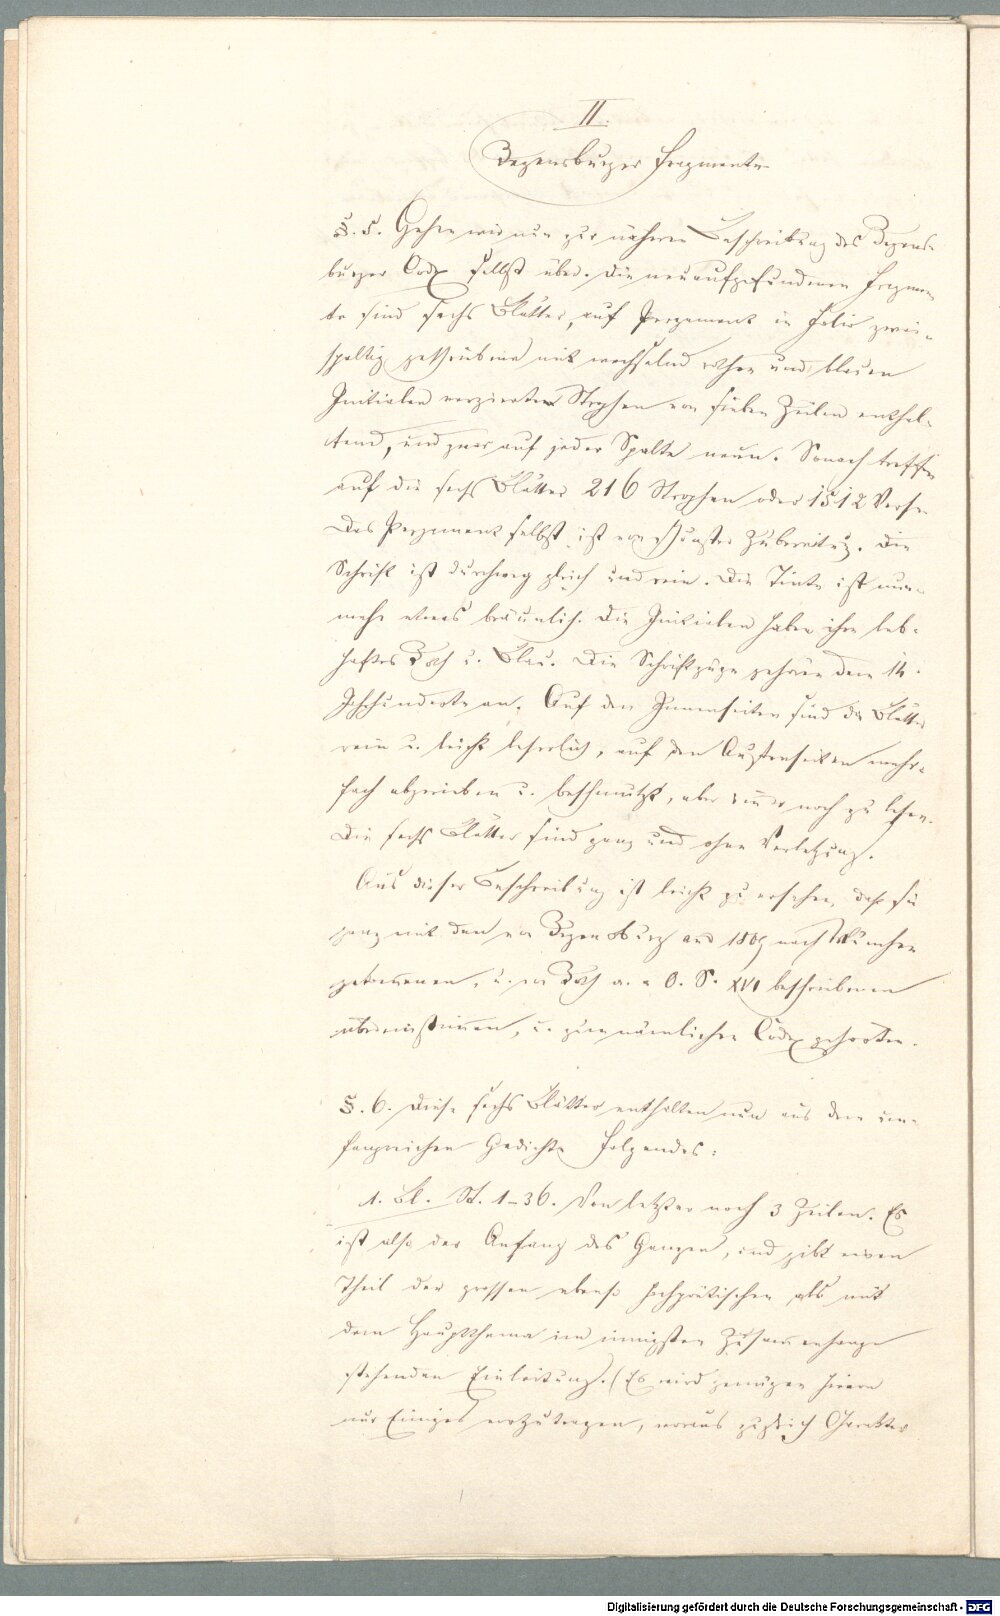 II.
Regensburger Fragmente
§. 5. Gehen wir nun zur näheren Beschreibung des Regens-
burger Codex selbst über. Die neuaufgefundenen Fragmen-
te sind sechs Blätter, auf Pergament in Folio zwei-
spaltig geschrieben mit wechselnd rothen und blauen
Initialen verzierten Strophen von sieben Zeilen enthal-
tend, und zwar auf jeder Spalte neun. Sonach treffen
auf die sechs Blätter 216 Strophen oder 1512 Verse.
Das Pergament selbst ist von schönster Zubereitug. Die
Schrift ist durchweg gleich und rein. Die Tinte ist nun-
mehr etwas bräunlich. Die Initialen haben ihr leb-
haftes Roth u. Blau. Die Schriftzüge gehören dem 14.
Jahrhunderte an. Auf den Innenseiten sind die Blätter
rein u. leicht leserlich, auf den Aussenseiten mehr-
fach abgerieben u. beschmutzt, aber immer noch zu lesen.
Die sechs Blätter sind ganz und ohne Verletzung.
Aus dieser Beschreibung ist leicht zu ersehen, dass sie
ganz mit den von Regensburg anno 1809 nach München
gekommenen, u. von Roth a. a O. S. XVI beschriebenen
übereinstimmen, u. zum nämlichen Codex gehörten.
§. 6. Diese sechs Blätter enthalten nun aus dem um-
fangreichen Gedichte Folgendes:
1. Bl. St. 1–36. Von letzter noch 3 Zeilen. Es
ist also der Anfang des Ganzen, und gibt einen
Theil der grossen ebenso hochpoëtischen als mit
dem Hauptthema im innigsten Zusammenhange
stehenden Einleitung. (Es wird genügen hievon
nur Einiges vorzutragen, woraus zugleich Charakter
Digitalisierung gefördert durch die Deutsche Forschungsgemeinschaft - DFG